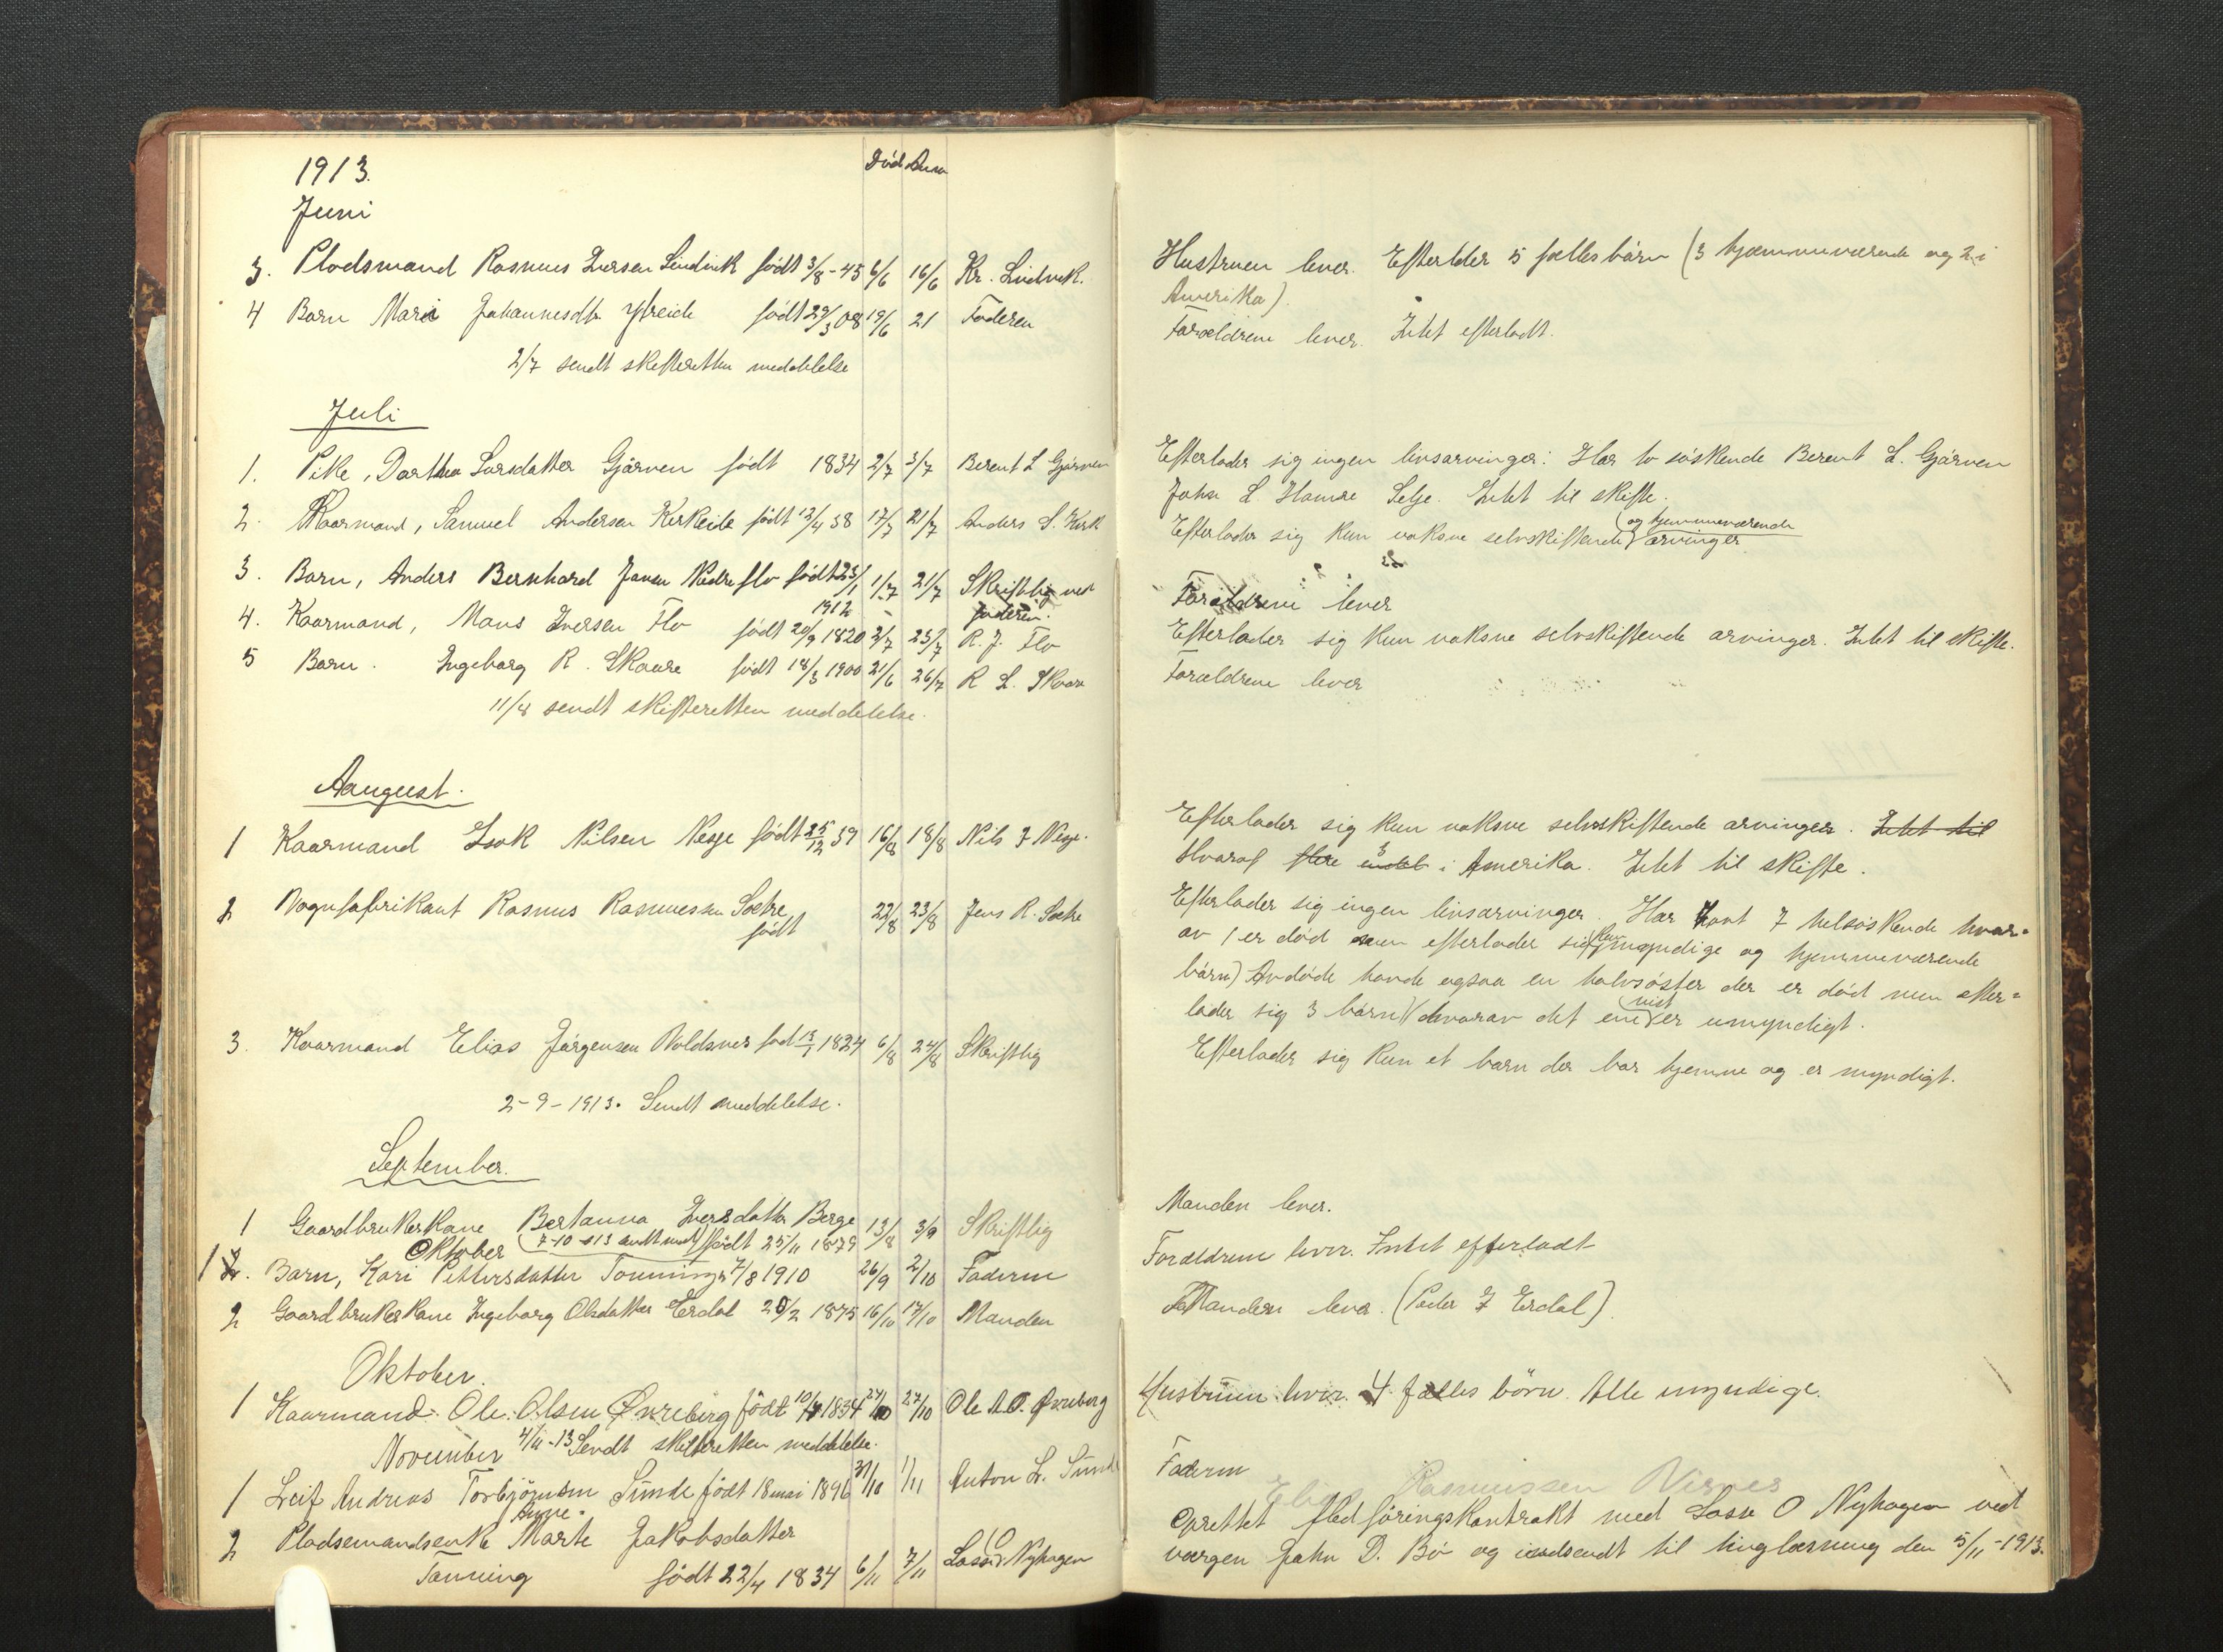 1913.
Død Anm
Juni
3. Pladsmand Rasmus Iversen Lindvik født 3/8-45 6/6 16/6 Kr. Lindvik.
4 Barn Mari Johannesdtr Ytreeide født 29/3 08 19/6 21 Faderen
2/7 sendt skifteretten meddelelse
Juli
1. Pike, Dorthea Larsdatter Gjørven født 1834 2/7 3/7 Berent L Gjørven
2. Kaarmand, Samuel Andersen Kirkeide født 12/4 38 17/7 21/7 Anders S. Kirk
3. Barn, Anders Bernhard Jansen Nedreflo født 23/1 1/7 21/7 Skriftlig ved
1912 faderen.
4. Kaarmand, Mons Iversen Flo født 20/9 1820 2/7 23/7 R. J. Flo
5 Barn. Ingeborg R. Skaare født 18/3 1900 21/6 26/7 R L. Skaar
11/8 sendt skifteretten meddelelse.
Aaugust.
1 Kaarmand Isak Nilsen Nesje født 25/12 39 16/8 18/8 Nils I Nesje.
2 Vognfabrikant Rasmus Rasmussen Sætre 22/8 23/8 Jens R. Sætre
født
3. Kaarmand Elias Jørgensen Voldsnes fød 13/1 1824 6/8 24/8 Skriftlig
2-9-1913. Sendt meddelelse.
September.
1 Gaardbrukerkone Bertanna Iversdatter Berge 13/8 3/9 Skriftlig
7-10-13 sendt med født 25/11 1879
Oktober
1 2. Barn, Kari Pettersdatter Tonning 7/8 1910 26/9 2/10 Faderen
2 Gaardbrukerkone Ingeborg Olsdatter Erdal 20/2 1875 16/10 17/10 Manden
Oktober.
1 Kaarmand Ole Olsen Øvreberg født 10/4 1834 24/10 27/10 Ole A O. Øvreberg
4/11-13 Sendt skifteretten meddelelse.
November
1 Leif Andreas Torbjörnsen Sunde født 18 mai 1896 31/10 1/11 Anton L. Sunde
Anne
2 Pladsemandsenke Marte Jakobsdatter
Tonning født 22/4 1834 6/11 7/11 Lasse O Nyhagen
Hustruen lever. Efterlder 5 fælles børn (3 hjemmeværende og 2 i
Amerika).
Forældrene lever. Intet efterladt.
Efterlader sig ingen livsarvinger: Har to søskende Berent L. Gjørven
John L. Hamre Selje. Intet til skifte.
og hjemmeværende
Efterlader sig kun voksne selvskiftende arvinger
Forældrene lever
Efterlader sig kun voksne selvskiftende arvinger. Intet til skifte.
Forældrene lever
Efterlader sig kun voksne selvskiftende arvinger. Intet til
Hvoraf flere 3 i Amerika. Intet til skifte.
Efterlader sig ingen livsarvinger. Har havt 7 helsøskende hvor=
av 1 er død men efterlader sig kun myndige og hjemmeværende
børn) Avdøde havde ogsaa en halvsøster der er død men efter=
lader sig 3 børn (hvorav det ene vist er umyndigt.
Efterlader sig kun et barn der bor hjemme og er myndigt.
Manden lever.
Forældrene lever. Intet efterladt
Manden lever. (Peder I Erdal).
Hustruen lever. 4 fælles börn. Alle myndige.
Faderen
Elias Rasmussen Visnes
Oprettet Fledføringskontrakt med Lasse O Nyhagen ved
værgen John D. Bø og indsendt til tinglæsning den 5/11-1913.